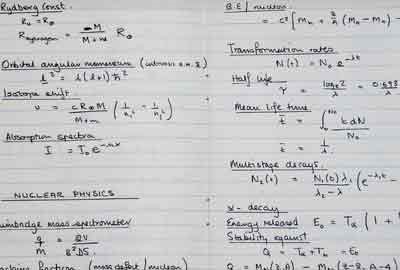 Rydberg Const.
R∞ = R∞
R hydrogen = M / M+m R∞
Orbital angular momentum (intrinsic
l² = l(l+1)ħ²
Isotope shift.
ν = cR∞M / M+m (1/n₁² - 1/n₂²)
Absorption spectra
I = I₀e
NUCLEAR PHYSICS
mass spectrometer
q/M = 2V / B²DS
fraction (mass defect / nucleon)
B.E / nucleon
= c² [Mn + Z/A (MH - Mn) -
Transformation rates
N(t) = N₀ e^-λt
Half life
τ = loge2 / λ = 0.693
Mean life time
t̄ = ∫ t dN / N₀
t̄ = 1/λ
Multistage decays.
N₂(t) = N₁(0) λ₁ / λ₂ - λ₁ (e^-λ₁t -
α - decay
Energy released E₀ = Tα (1 +
Stability against
Q = Tα + Tb = E₀
Q = (Z,A) - (Z-2, A-4)